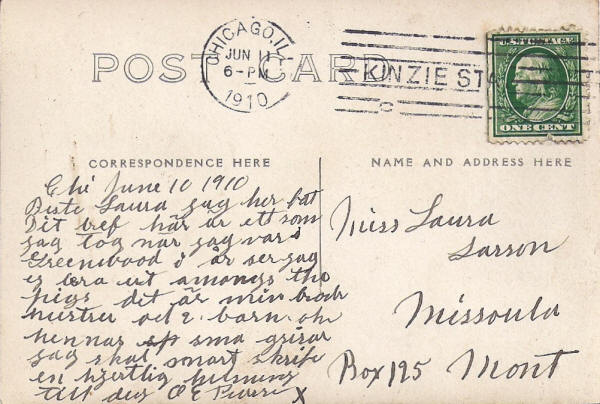 POST CARD
CHICAGO, ILL.
JUN 11
6-PM
1910
KINZIE ST
U.S. POSTAGE
ONE CENT
CORRESPONDENCE HERE
NAME AND ADDRESS HERE
Chi June 10 1910
Biste Laura jag her fat
Dit bref här är ett som
jag tog när jag var i
Greenwood i år ser jag
ej bra ut amongs the
pigs det är min brock
hustru och 2 barn oh
hennar sma grisar
jag skal snart skrife
en hjertlig helsning
till deg O E
X
Miss Laura
Larson
Missoula
Box 125 Mont